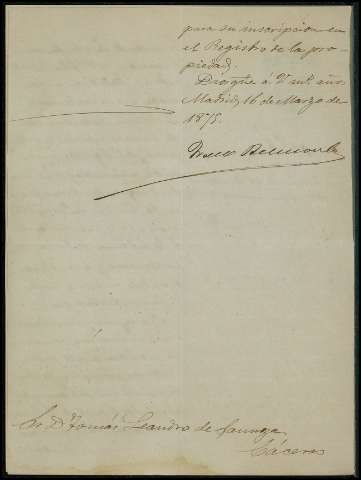 para su inscripcion en
el Registro de la pro-
piedad.
Dios gue á V. ms. años
Madrid, 16 de Marzo de
1875.
Belmonte
Sr. Dn. Tomás Leandro de
Cáceres